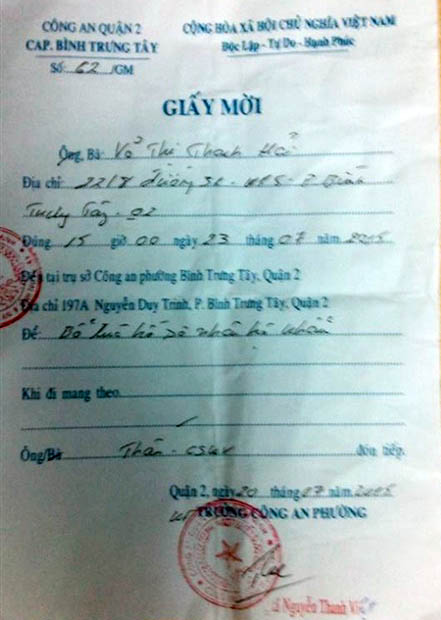 CÔNG AN QUẬN 2
CAP. BÌNH TRƯNG TÂY
Số: 62 /GM
CỘNG HÒA XÃ HỘI CHỦ NGHĨA VIỆT NAM
Độc Lập - Tự Do - Hạnh Phúc
GIẤY MỜI
Ông, Bà: Võ Thị Thanh Hải
Địa chỉ: 22/8 đường - P Bình
Trưng Tây - Q2
Đúng 15 giờ 00 ngày 23 tháng 07 năm 2015
Đến tại trụ sở Công an phường Bình Trưng Tây, Quận 2
Địa chỉ 197A Nguyễn Duy Trinh, P. Bình Trưng Tây, Quận 2
Để: Bổ túc hồ sơ nhân hộ khẩu
Khi đi mang theo
Ông/Bà Thân - CSKV đón tiếp.
Quận 2, ngày 20 tháng 07 năm 2015
TRƯỞNG CÔNG AN PHƯỜNG
Nguyễn Thanh